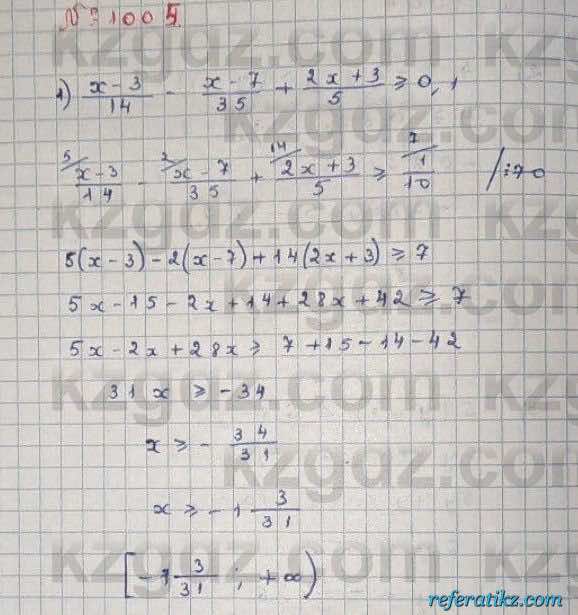 № 1005
1) (x-3)/14 - (x-7)/35 + (2x+3)/5 ≥ 0,1
5/ (x-3)/14 - 2/ (x-7)/35 + 14/ (2x+3)/5 ≥ 7/ 1/10 /:70
5(x-3)-2(x-7)+14(2x+3) ≥ 7
5x-15-2x+14+28x+42 ≥ 7
5x-2x+28x ≥ 7+15-14-42
31x ≥ -34
x ≥ - 34/31
x ≥ -1 3/31
[-1 3/31 ; +∞)
kzgdz.com
referatikz.com